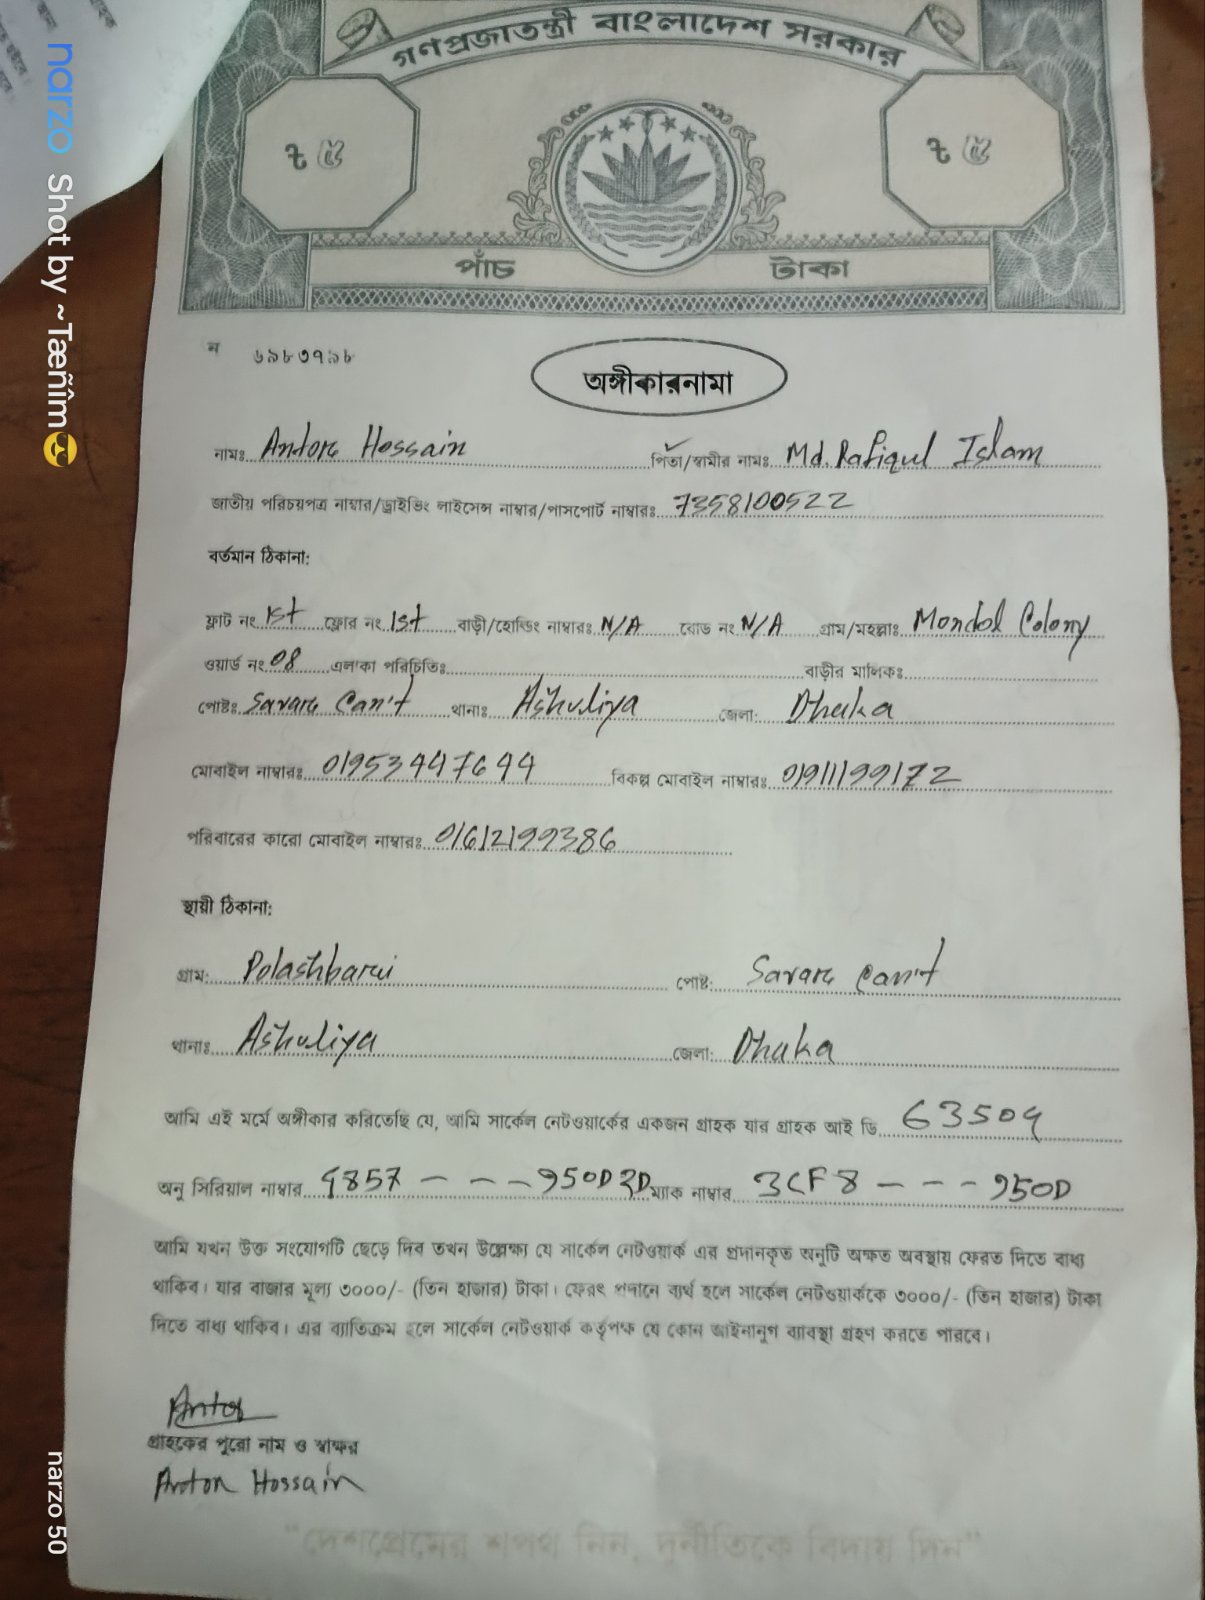 গণপ্রজাতন্ত্রী বাংলাদেশ সরকার
৳ ৫ ৳ ৫
পাঁচ টাকা
ন ৬৯৮৩৭৯৮
অঙ্গীকারনামা
নামঃ Antor Hossain পিতা/স্বামীর নামঃ Md. Rafiqul Islam
জাতীয় পরিচয়পত্র নাম্বার/ড্রাইভিং লাইসেন্স নাম্বার/পাসপোর্ট নাম্বারঃ 7358100522
বর্তমান ঠিকানা:
ফ্লাট নং 1st ফ্লোর নং 1st বাড়ী/হোল্ডিং নাম্বারঃ N/A রোড নং N/A গ্রাম/মহল্লাঃ Mondol Colony
ওয়ার্ড নং 08 এলাকা পরিচিতিঃ বাড়ীর মালিকঃ
পোষ্টঃ Savar Can't থানাঃ Ashuliya জেলা: Dhaka
মোবাইল নাম্বারঃ 01953447644 বিকল্প মোবাইল নাম্বারঃ 01911199172
পরিবারের কারো মোবাইল নাম্বারঃ 01612199386
স্থায়ী ঠিকানা:
গ্রাম: Polashbari পোষ্ট: Savar Can't
থানাঃ Ashuliya জেলা: Dhaka
আমি এই মর্মে অঙ্গীকার করিতেছি যে, আমি সার্কেল নেটওয়ার্কের একজন গ্রাহক যার গ্রাহক আই ডি
অনু সিরিয়াল নাম্বার ম্যাক নাম্বার 3CF8 - - - 950D
আমি যখন উক্ত সংযোগটি ছেড়ে দিব তখন উল্লেক্ষ্য যে সার্কেল নেটওয়ার্ক এর প্রদানকৃত অনুটি অক্ষত অবস্থায় ফেরত দিতে বাধ্য
থাকিব। যার বাজার মূল্য ৩০০০/- (তিন হাজার) টাকা। ফেরৎ প্রদানে ব্যর্থ হলে সার্কেল নেটওয়ার্ককে ৩০০০/- (তিন হাজার) টাকা
দিতে বাধ্য থাকিব। এর ব্যাতিক্রম হলে সার্কেল নেটওয়ার্ক কর্তৃপক্ষ যে কোন আইনানুগ ব্যাবস্থা গ্রহণ করতে পারবে।
Antor
গ্রাহকের পুরো নাম ও স্বাক্ষর
Antor Hossain
"দেশপ্রেমের শপথ নিন, দুর্নীতিকে বিদায় দিন"
narzo Shot by ~Tæñîm😎
narzo 50